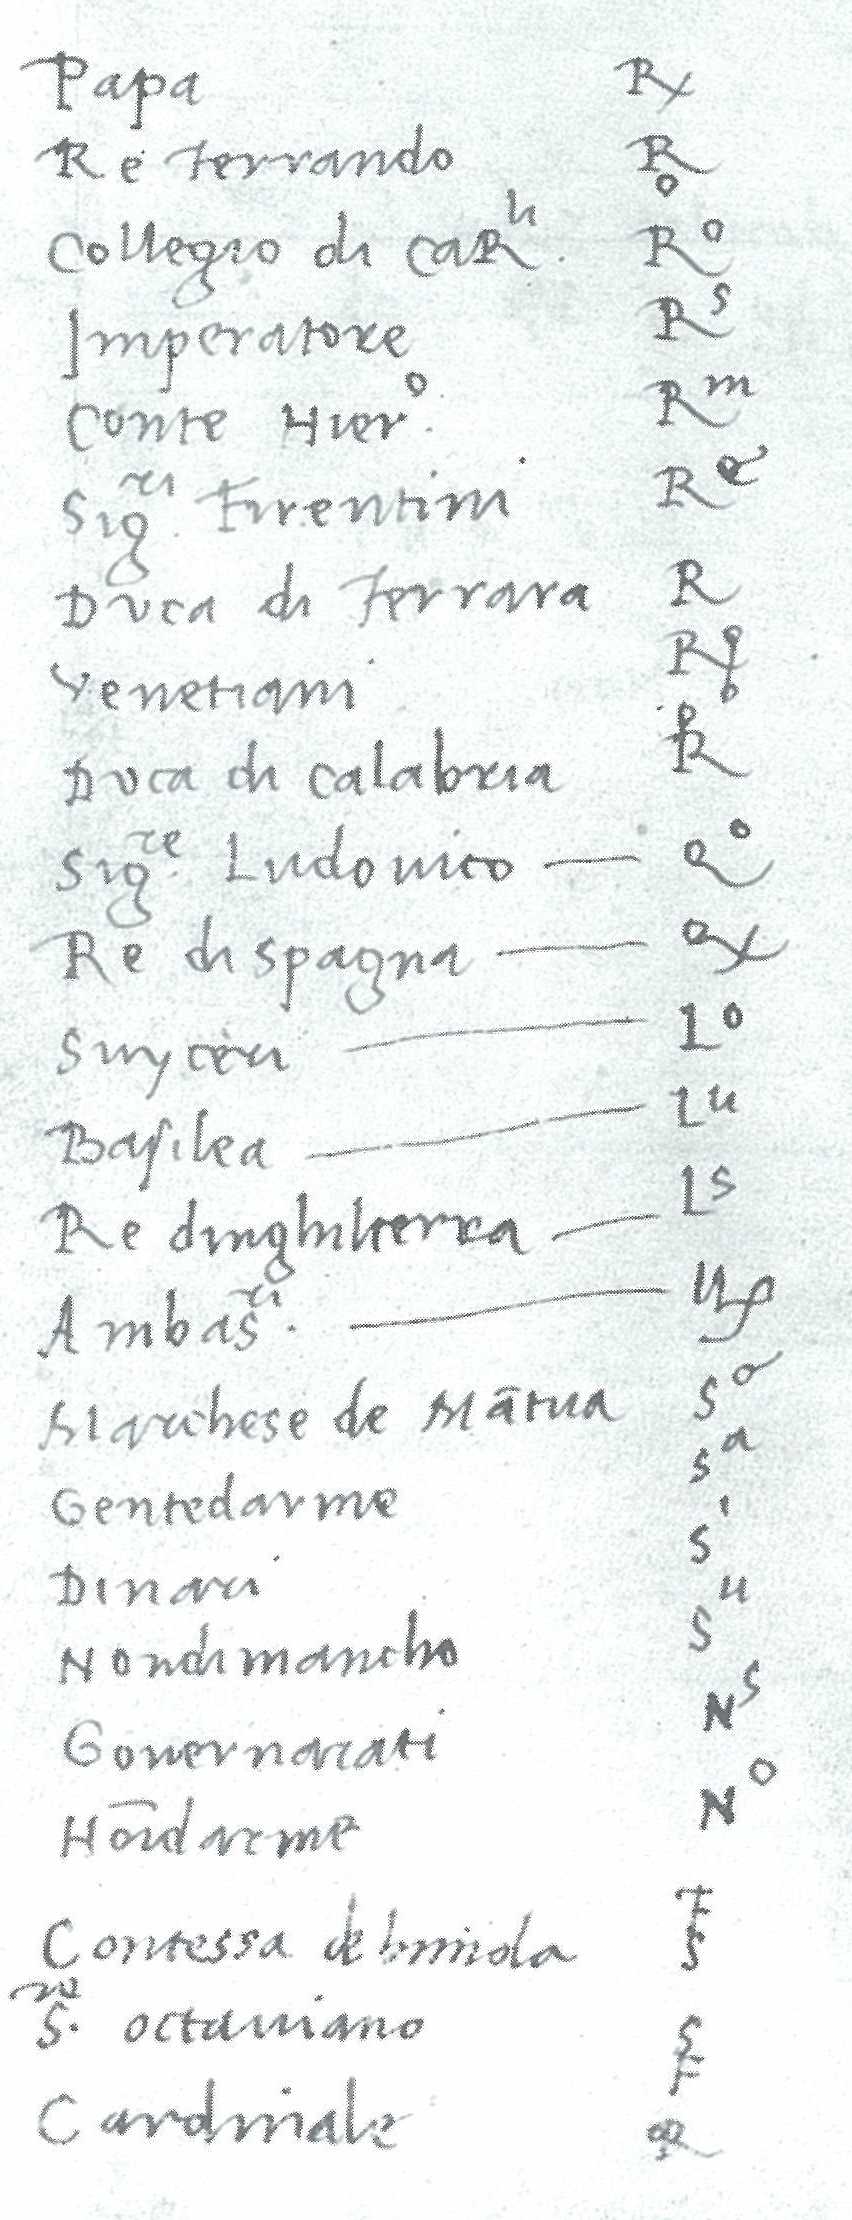 Papa R
Re ferrando R
Collegio di caRli R°
Imperatore Rs
Conte Hier° Rm
Sigri firentini R
Duca di ferrara R
Venetiani R
Duca di calabria R
Sigre Ludovico
Re di spagna
Suyceri L°
Basilea Lu
Re dinghilterra Ls
Ambasri
Marchese de Mātua So
Gentedarme Sa
Dinari Si
Nondimancho Su
Governarati Ns
Hōidarme N°
Contessa de Imola FS
Sre octaviano SF
Cardinale